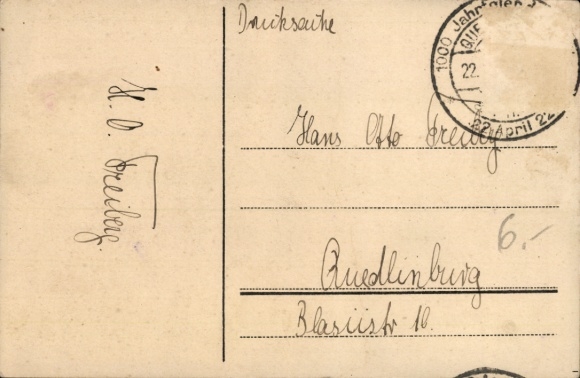 Drucksache
1000 Jahrfeier
22.
22 April 22
H. O. Freiberg.
Hans Otto Freiberg
6.-
Quedlinburg
Blasiistr 10.